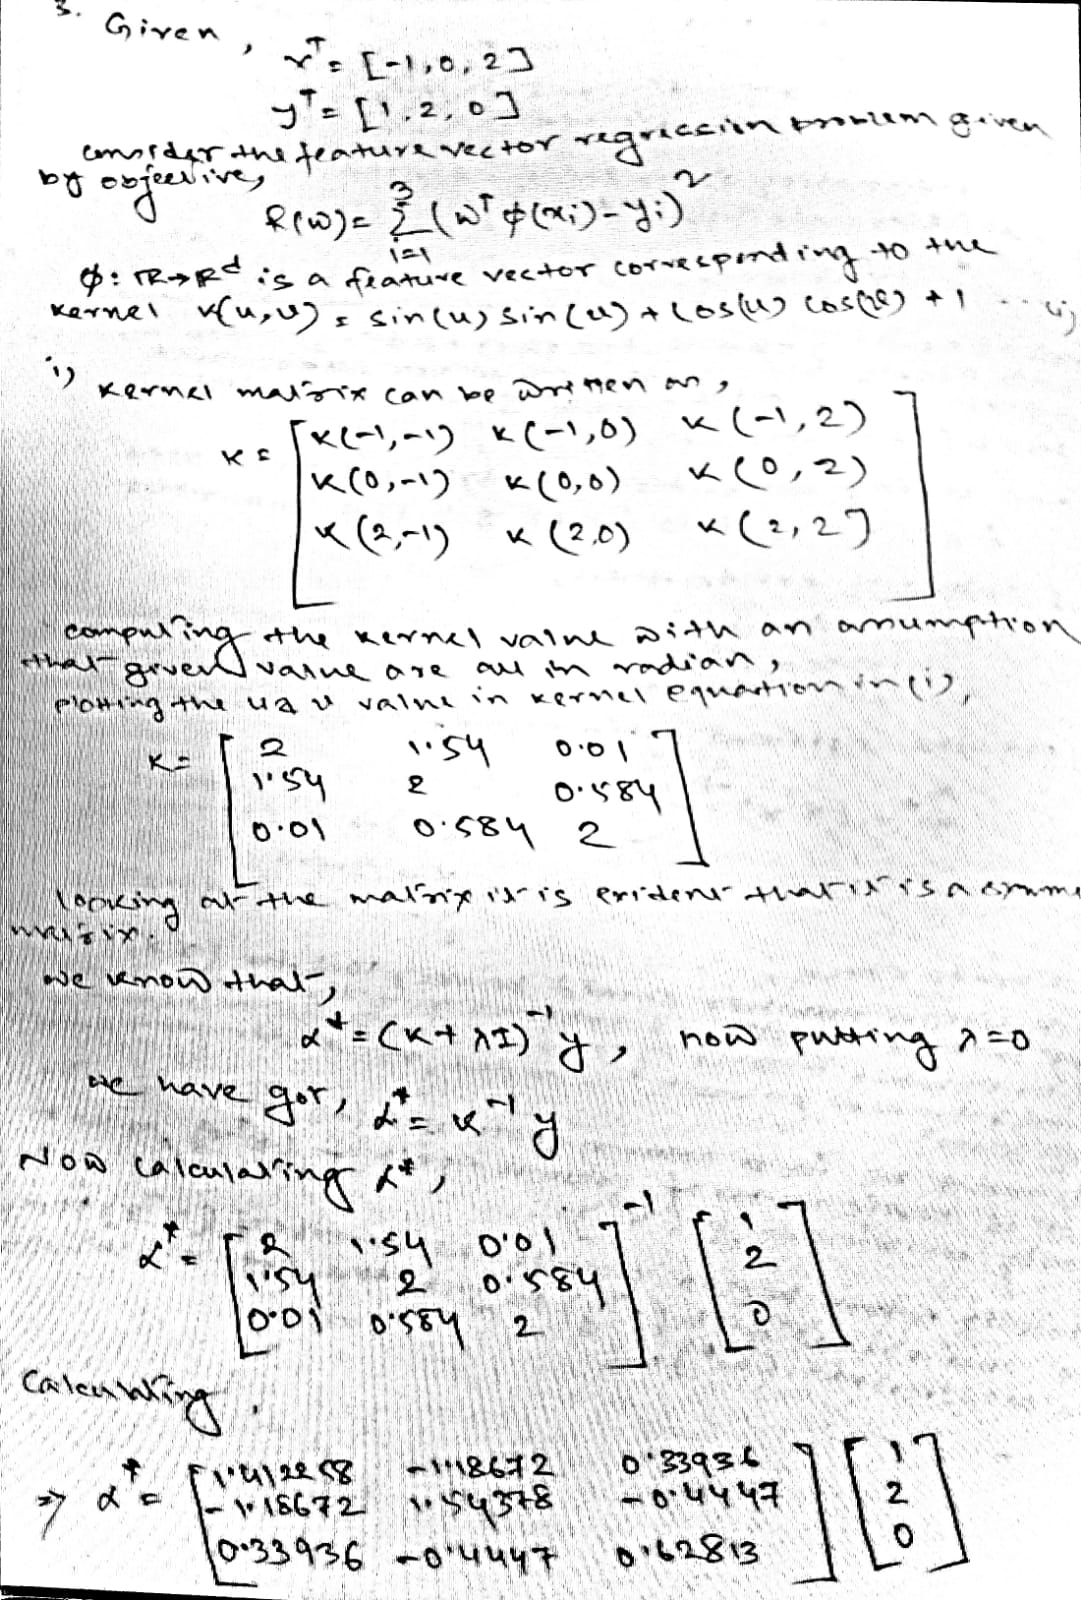 3. Given,
x^T = [-1, 0, 2]
y^T = [1, 2, 0]
consider the feature vector regression problem given
by objective,
R(w) = Σ_{i=1}^{3} (w^T φ(x_i) - y_i)^2
φ: R→R^d is a feature vector corresponding to the
kernel k(u,v) = sin(u) sin(v) + cos(u) cos(v) + 1 ... i)
i) kernel matrix can be written as,
K = [K(-1,-1) K(-1,0) K(-1,2)
K(0,-1) K(0,0) K(0,2)
K(2,-1) K(2,0) K(2,2)]
computing the kernel value with an assumption
that given value are all in radian,
plotting the u & v value in kernel equation in (i),
K = [2 1.54 0.01
1.54 2 0.584
0.01 0.584 2]
looking at the matrix it is evident that it is a symme
matrix.
we know that,
α* = (K + λI)^-1 y, now putting λ=0
we have got, α* = K^-1 y
Now calculating α*,
α* = [2 1.54 0.01
1.54 2 0.584
0.01 0.584 2]^-1 [1 2 0]
Calculating,
⇒ α* = [1.412258 -1.18672 0.33936
-1.18672 1.54378 -0.4447
0.33936 -0.4447 0.62813] [1 2 0]